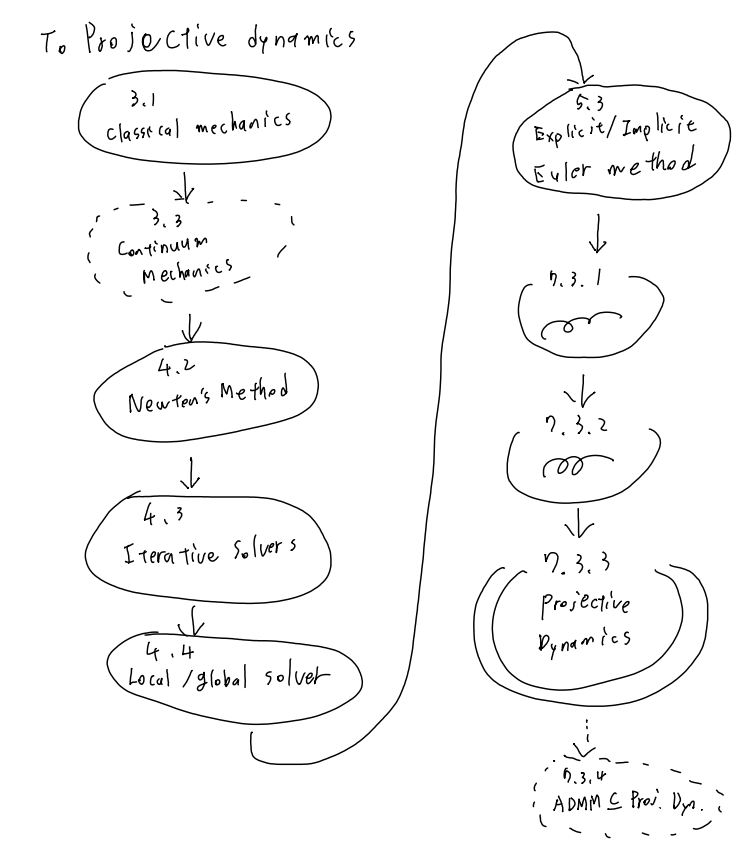 To Projective dynamics
3.1
Classical mechanics
3.3
Continuum
Mechanics
4.2
Newton's Method
4.3
Iterative Solvers
4.4
Local/global solver
5.3
Explicit/Implicit
Euler method
7.3.1
7.3.2
7.3.3
Projective
Dynamics
7.3.4
ADMM ⊆ Proj. Dyn.